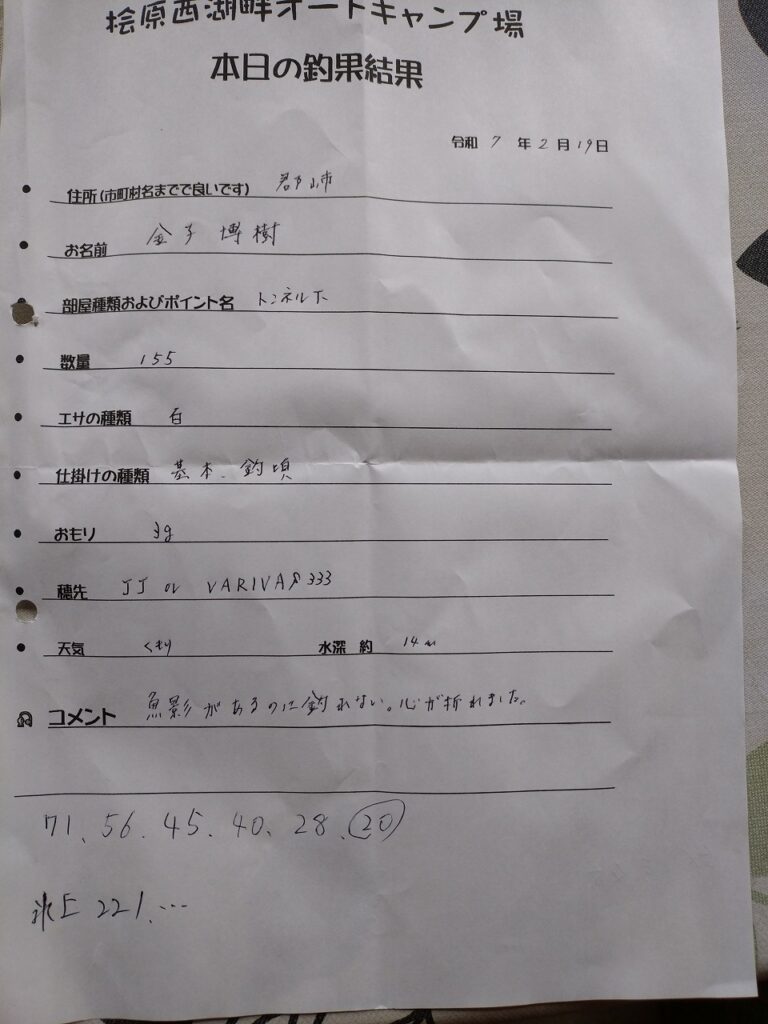 桧原西湖畔オートキャンプ場
本日の釣果結果
令和 7 年 2 月 19日
• 住所(市町村名までで良いです) 郡山市
• お名前 金子 博樹
• 部屋種類およびポイント名 トンネル下
• 数量 155
• エサの種類 白
• 仕掛けの種類 基本、釣頃
• おもり 3g
• 穂先 JJ or VARIVAS 333
• 天気 くもり 水深 約 14m
コメント 魚影があるのに釣れない。心が折れました。
71. 56. 45. 40. 28. 20
氷上 221. …